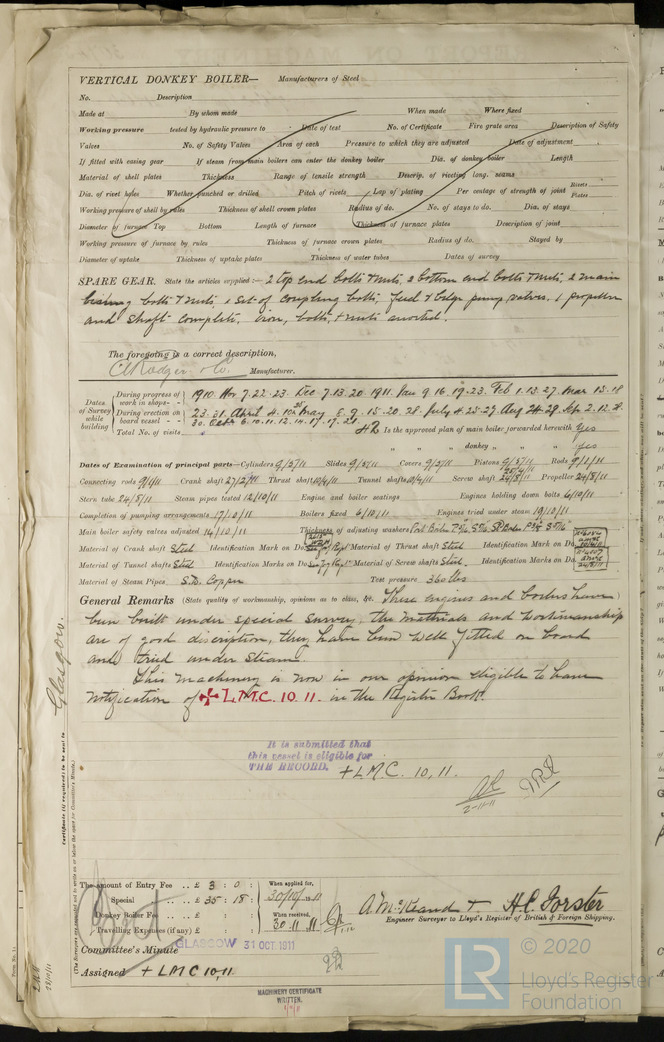 VERTICAL DONKEY BOILER— Manufacturers of Steel
No. Description
Made at By whom made When made Where fixed
Working pressure tested by hydraulic pressure to Date of test No. of Certificate Fire grate area Description of Safety
Valves No. of Safety Valves Area of each Pressure to which they are adjusted Date of adjustment
If fitted with easing gear If steam from main boilers can enter the donkey boiler Dia. of donkey boiler Length
Material of shell plates Thickness Range of tensile strength Descrip. of riveting long. seams
Dia. of rivet holes Whether punched or drilled Pitch of rivets Lap of plating Per centage of strength of joint Rivets Plates
Working pressure of shell by rules Thickness of shell crown plates Radius of do. No. of stays to do. Dia. of stays
Diameter of furnace Top Bottom Length of furnace Thickness of furnace plates Description of joint
Working pressure of furnace by rules Thickness of furnace crown plates Radius of do. Stayed by
Diameter of uptake Thickness of uptake plates Thickness of water tubes Dates of survey
SPARE GEAR. State the articles supplied:— 2 top end bolts & nuts, 2 bottom end bolts & nuts, 2 main
bearing bolts & nuts, 1 set of coupling bolts, feed & bilge pump valves, 1 propeller
and shaft complete, iron, bolts, & nuts assorted.
The foregoing is a correct description,
Manufacturer.
Dates of Survey while building
During progress of work in shops - - 1910. Nov 7. 22. 23. Dec 7. 13. 20. 1911. Jan 9. 16. 19. 23. Feb 1. 13. 27. Mar 13. 18
During erection on board vessel - - - 23. 31. April 4. 10. May 8. 9. 15. 20. 28. July 4. 25. 27. Aug 24. 28. Sep 2. 12. 28.
30. Octr 6. 10. 11. 12. 14. 17. 17. 21.
Total No. of visits 42 Is the approved plan of main boiler forwarded herewith Yes
" " " donkey " " Yes
Dates of Examination of principal parts—Cylinders 9/5/11 Slides 9/5/11 Covers 9/5/11 Pistons 9/5/11 Rods 9/1/11
Connecting rods 9/1/11 Crank shaft 27/2/11 Thrust shaft 10/4/11 Tunnel shafts 10/4/11 Screw shaft 24/8/11 Propeller 24/8/11
Stern tube 24/8/11 Steam pipes tested 12/10/11 Engine and boiler seatings Engines holding down bolts 6/10/11
Completion of pumping arrangements 17/10/11 Boilers fixed 6/10/11 Engines tried under steam 19/10/11
Main boiler safety valves adjusted 14/10/11 Thickness of adjusting washers
Material of Crank shaft Steel Identification Mark on Do. Material of Thrust shaft Steel Identification Mark on Do.
Material of Tunnel shafts Steel Identification Marks on Do. Material of Screw shafts Steel Identification Marks on Do.
Material of Steam Pipes S.D. Copper Test pressure 360 lbs
General Remarks (State quality of workmanship, opinions as to class, &c. These engines and boilers have
been built under special survey, the materials and workmanship
are of good discription, they have been well fitted on board
and tried under steam.
This machinery is now in our opinion eligible to have
notification of ✠ L.M.C. 10. 11. in the Register Book.
It is submitted that
this vessel is eligible for
THE RECORD. + L.M.C. 10, 11.
2-11-11
Glasgow.
Certificate (if required) to be sent to
(The Surveyors are requested not to write on or below the space for Committee's Minute.)
The amount of Entry Fee .. £ 3 : 0 : When applied for,
Special .. £ 35 : 18 : 30/10/11
Donkey Boiler Fee .. £ : : When received,
Travelling Expenses (if any) £ : : 30. 11. 11
A. McKeand & H.C. Forster
Engineer Surveyor to Lloyd's Register of British & Foreign Shipping.
Committee's Minute GLASGOW 31 OCT. 1911
Assigned + L M C 10, 11
MACHINERY CERTIFICATE
WRITTEN.
LR © 2020
Lloyd's Register
Foundation